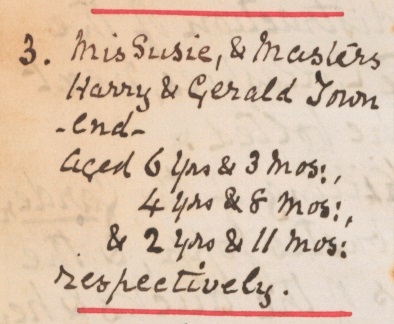 3. Mis Susie, & Masters
Harry & Gerald Town
-end-
aged 6 yrs & 3 mos:,
4 yrs & 8 mos:,
& 2 yrs & 11 mos:
respectively.